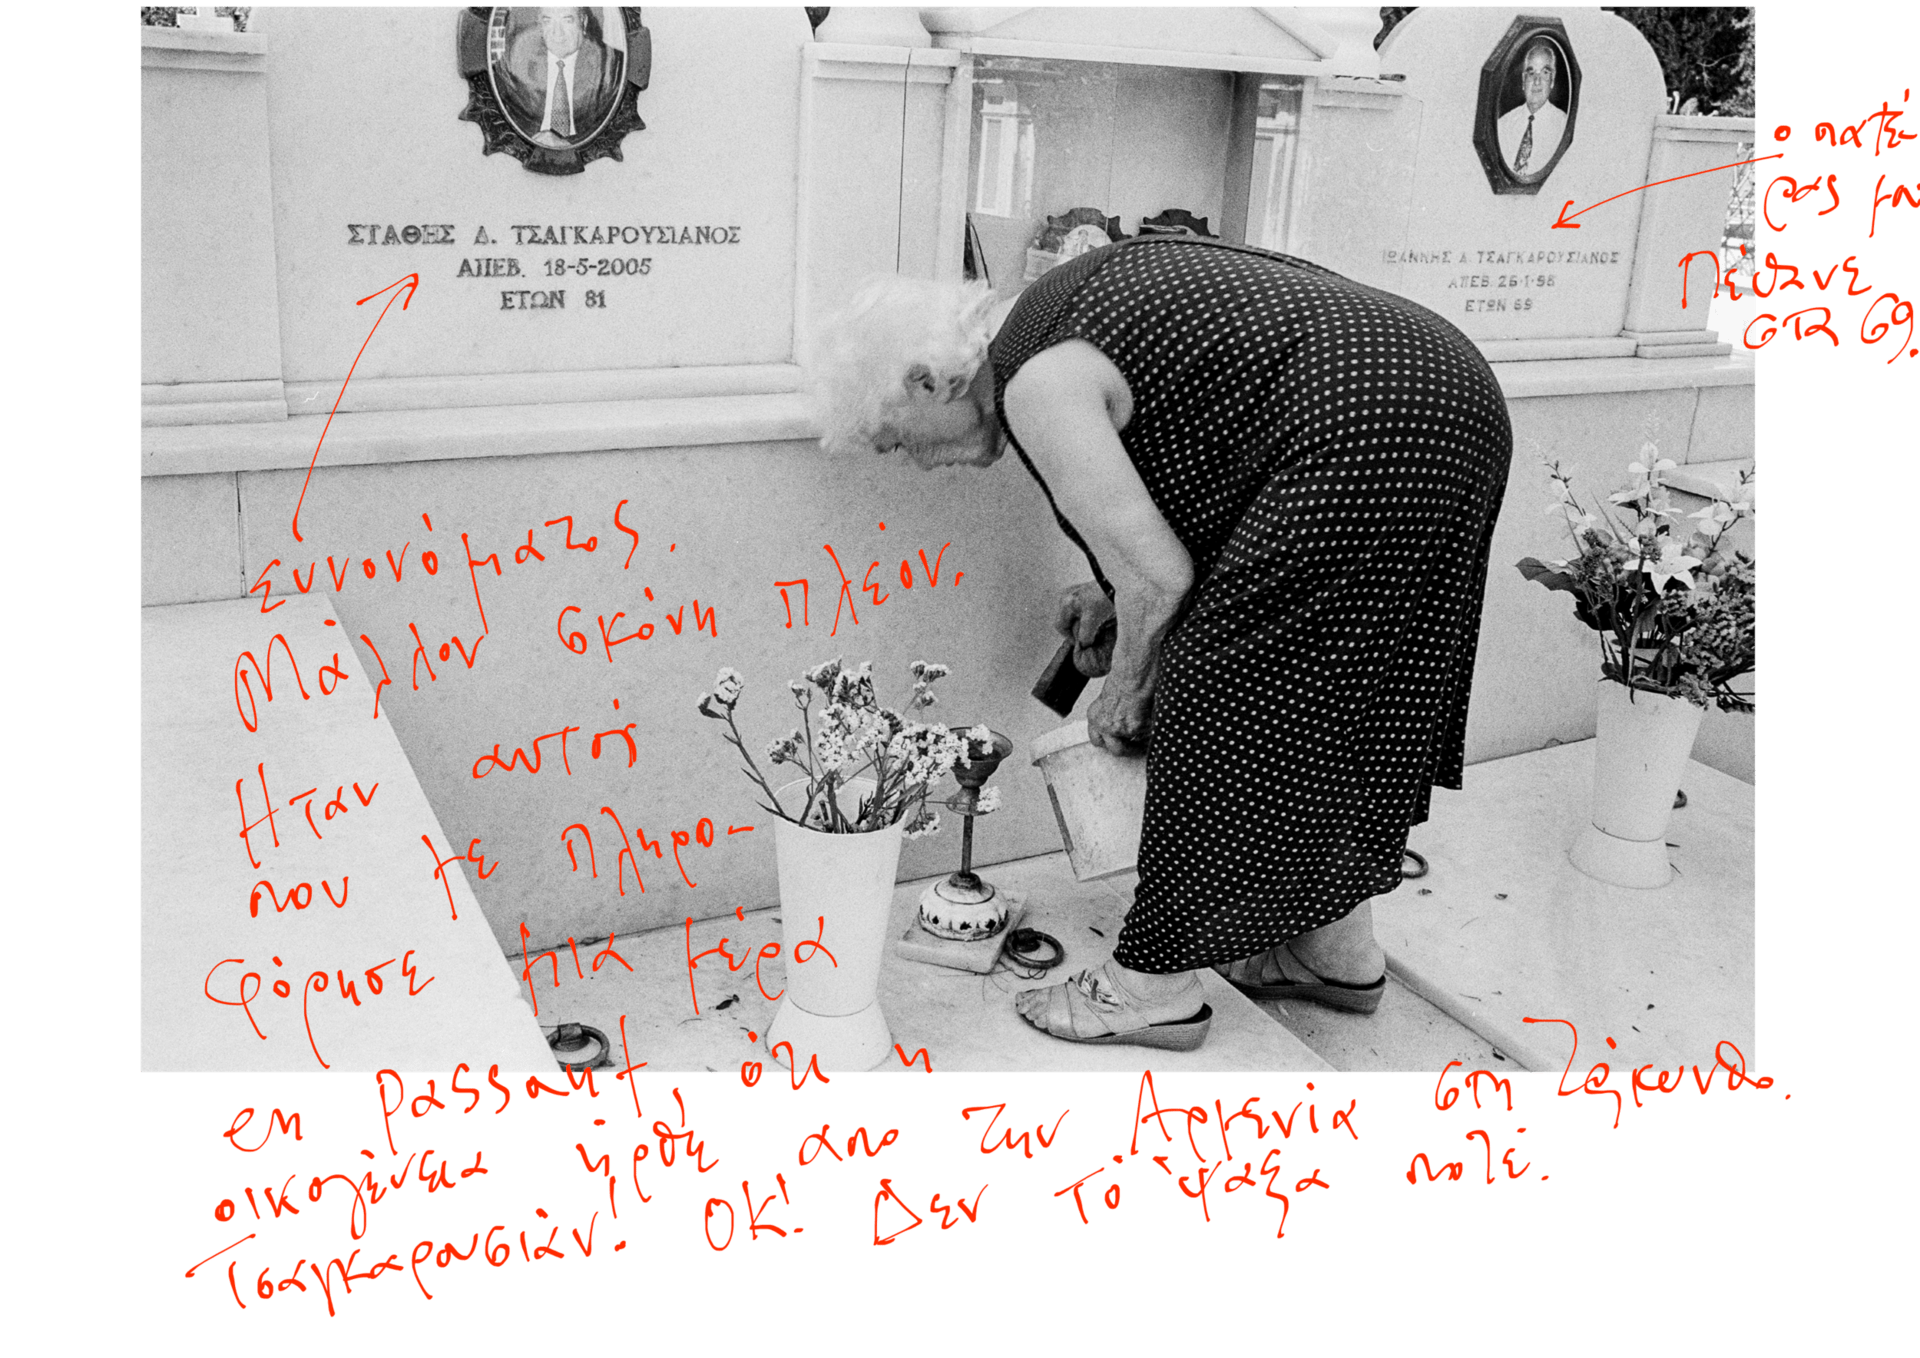 ΣΤΑΘΗΣ Δ. ΤΣΑΓΚΑΡΟΥΣΙΑΝΟΣ
ΑΠΕΒ. 18-5-2005
ΕΤΩΝ 81
ΙΩΑΝΝΗΣ Δ. ΤΣΑΓΚΑΡΟΥΣΙΑΝΟΣ
ΑΠΕΒ. 26-1-98
ΕΤΩΝ 69
ο πατέ-
ρας μου
Πέθανε
στα 69.
συνονόματος.
Μάλλον σκόνη πλέον.
Ήταν αυτός
που με πληρο-
φόρησε μια μέρα
en passant, ότι η
οικογένεια ήρθε απο την Αρμενία στη Ζάκυνθο.
Τσαγκαρουσιάν! OK! Δεν το έψαξα ποτέ.